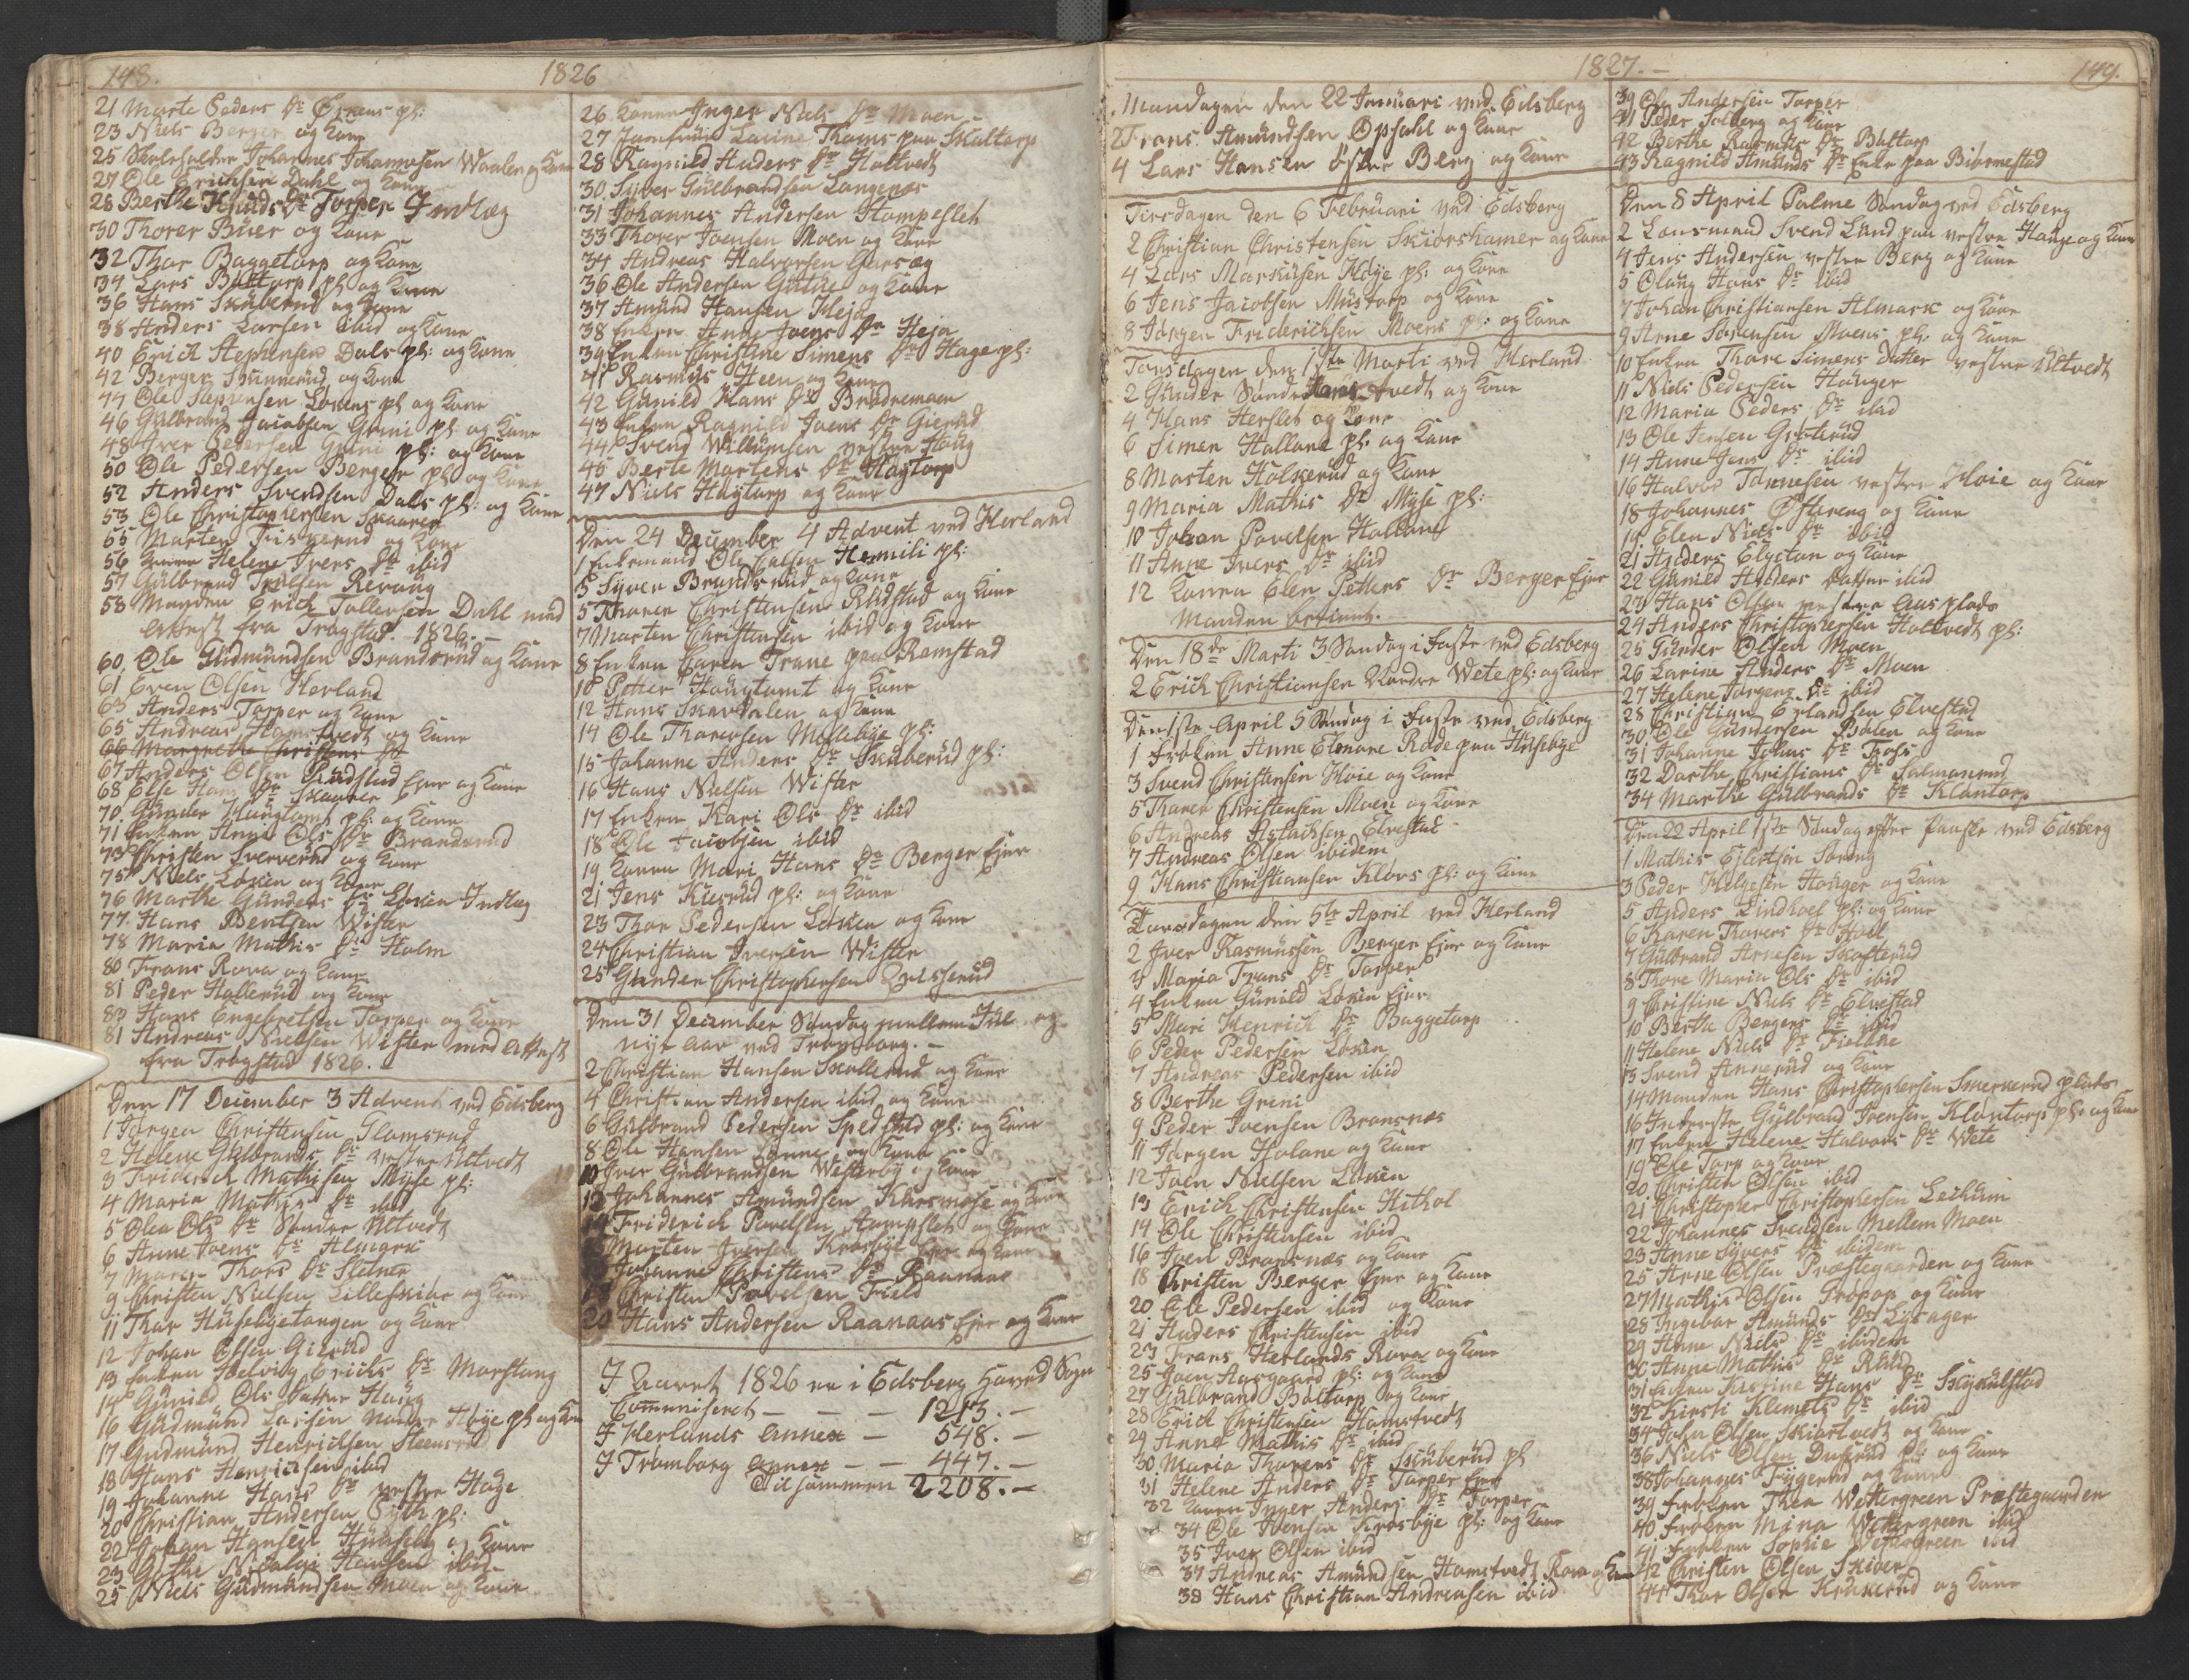 148.
1826
21 Marte Peders Dr Øsens pl:
23 Niels Berger og Kone
25 Skoleholder Johannes Johannesen Waaler og Kone
27 Ole Erichsen Dahl og Kone
28 Berthe Knuds Dr Torper Indlæg
30 Thorer Buer og Kone
32 Thor Baggetorp og Kone
34 Lars Bøltorp pl og Kone
36 Hans Skuberud og Kone
38 Anders Larsen ibid og Kone
40 Erich Stephensen Dals pl: og Kone
42 Berger Skinnerud og Kone
44 Ole Stephensen Løkens pl og Kone
46 Gulbrand Jacobsen Greni pl: og Kone
48 Iver Pedersen Greni pl: og Kone
50 Ole Pedersen Berger pl og Kone
52 Anders Svendsen Dals pl: og Kone
53 Ole Christophersen Skaarer
55 Morten Fiskerud og Kone
56 Konen Helene Ivers Dr ibid
57 Gulbrand Trulsen Revoug
58 Manden Erich Tollefsen Dahl med
Attest fra Trøgstad. 1826. —
60. Ole Gudmundsen Brandsrud og Kone
61 Even Olsen Herland
63 Anders Torper og Kone
65 Andreas Hamstvedt og Kone
66 Margrethe Christens Dr
67 Anders Olsen Rudstad Ejer og Kone
68 Else Hans Dr Skaarer
70. Gunder Haugtomt pl: og Kone
71 Enken Anne Ols Dr Brandsrud
73 Christen Sververud og Kone
75 Niels Løken og Kone
76 Marthe Gunders Dr Løken Indlæg
77. Hans Bentsen Wister
78 Maria Mathis Dr Holm
80 Frans Rova og Kone
81 Peder Hallerud og Kone
83 Hans Engebretsen Torper og Kone
81 Andreas Nielsen Wister med Attest
fra Trøgstad 1826.
Den 17 December 3 Advent ved Edsberg
1 Jørgen Christensen Glomsrud
2 Helene Gulbrands Dr vestre Utvedt
3 Friderich Mathisen Myse pl:
4 Maria Mathis Dr ibid
5 Olea Ols Dr Søndre Utvedt
6 Anne Joens Dr Almark
7 Maren Thors Dr Sletner
9 Christen Nielsen Lilleskiber og Kone
11 Thor Husebyetangen og Kone
12 Johan Olsen Gierud
13 Enken Hedevig Erichs Dr Morstang
14 Gunild Ols Datter Haug
16 Gudmund Larsen nordre Høye pl og Kone
17 Gudmund Henrichsen Steensrud
18 Hans Henrichsen ibid
19 Johanne Hans Dr vestre Høye
20 Christian Andersen pl:
22 Johan Hansen Huuseby og Kone
23 Nicolai Hansen ibid
25 Niels Gudmundsen Moen og Kone
26. Konen Inger Niels Dr Moen
27 Jomfrue Lovine Thoms paa Skultorp
28 Ragnild Anders Dr Holtvedt
30 Syver Gulbrandsen Langenæs
31 Johannes Andersen Stompeslet
33 Thorer Joensen Moen og Kone
34 Andreas Halvorsen Garseg
36 Ole Andersen Guthe og Kone
37 Amund Hansen Heja
38 Enken Anne Joens Dr Heja
39 Enken Christine Simens Dr Hage pl:
41 Rasmus Heen og Kone
42 Gunild Hans Dr Brødremoen
43 Enken Ragnild Joens Dr Gierud
44 Svend Willumsen vestre Houg
45 Berte Mortens Dr Høytorp
47 Niels Høytorp og Kone
Den 24 December 4 Advent ved Herland
1 Enkemand Ole Colsen Hemili pl:
3 Syver Brandsrud og Kone
5 Thorer Christensen Rudstad og Kone
7 Morten Christensen ibid og Kone
8 Enken Caren Trane paa Ramstad
10 Petter Haugtomt og Kone
12 Hans Skardalen og Kone
14 Ole Thoresen Mellebye pl:
15 Johanne Anders Dr Skuberud pl:
16 Hans Nielsen Wister
17 Enken Kari Ols Dr ibid
18 Ole Jacobsen ibid
19 Konen Mari Hans Dr Berger Ejer
21 Jens Kiesrud pl: og Kone
23 Thor Pedersen Løken og Kone
24 Christian Iversen Wister
25 Gunder Christophersen Qvisserud
Den 31 December Søndag mellem Jul og
nyt Aar ved Trømborg. —
2 Christian Hansen Skollerud og Kone
4 Christian Andersen ibid og Kone
6 Gulbrand Pedersen Spedsrud pl: og Kone
8 Ole Hansen Lønne og Kone
10 Iver Gulbrandsen Westerby og Kone
12 Johannes Amundsen Kursmose og Kone
14 Friderich Povelsen Aampslet og Kone
Morten Iversen Krosbye Ejer og Kone
Johanne Christens Dr Raanaas
18 Christen Povelsen Field
20 Hans Andersen Raanaas Ejer og Kone
I Aaret 1826 er i Edsberg Hoved Sogn
Communiseret — — — 1213. —
I Herlands Annex — 548. —
I Trømborg Annex — — 447. —
Tilsammen 2208. —
1827. —
149.
Mandagen den 22 Januari ved Edsberg
2 Frans Amundsen Opsahl og Kone
4 Lars Hansen østre Berg og Kone
Tirsdagen den 6 Februari ved Edsberg
2 Christian Christensen Skiørshamer og Kone
4 Lars Markusen Høye pl: og Kone
6 Jens Jacobsen Mustorp og Kone
8 Jørgen Friderichsen Moens pl: og Kone
Torsdagen den 1ste Marti ved Herland
2 Gunder Søndre Hamstvedt og Kone
4 Hans Herslet og Kone
6 Simen Hallane pl: og Kone
8 Morten Holkerud og Kone
9 Maria Mathis Dr Myse pl:
10 Johan Povelsen Hallane
11 Anne Ivers Dr ibid
12 Konen Elen Petters Dr Berger Ejer
Manden betient.
Den 18de Marti 3 Søndag i Faste ved Edsberg
2 Erich Christiansen Nordre Wete pl: og Kone
Den 1ste April 5 Søndag i Faste ved Edsberg
1 Frøken Anne Elenore Rode paa Husebye
3 Svend Christensen Hoie og Kone
5 Thorer Christensen Moen og Kone
6 Andreas Aslachsen Elvestad
7 Andreas Olsen ibidem
9 Hans Christiansen Kløvs pl: og Kone
Torsdagen den 5te April ved Herland
2 Iver Rasmussen Berger Ejer og Kone
3 Maria Frans Dr Torper
4 Enken Gunild Løken Ejer
5 Mari Henrich Dr Baggetorp
6 Peder Pedersen Løken
7 Andreas Pedersen ibid
8 Berthe Greni
9 Peder Ivensen Bransnæs
11 Jørgen Holane og Kone
12 Joen Nielsen Løken
13 Erich Christensen Hithol
14 Ole Christensen ibid
16 Joen Bransnæs og Kone
18 Christen Berger Ejer og Kone
20 Ole Pedersen ibid og Kone
21 Anders Christensen ibid
23 Frans Herlands Rova og Kone
25 Joen Aasgaard pl: og Kone
27 Gulbrand Boltorp og Kone
28 Erich Christensen Hamstvedt
29 Anne Mathis Dr ibid
30 Maria Thorers Dr Skuberud pl
31 Helene Anders Dr Torper Ejer
32 Konen Inger Anders Dr Torper
34 Ole Hensen Krosbye pl: og Kone
35 Iver Olsen ibid
37 Andreas Amundsen Hamstvedt Rova og Kone
38 Hans Christian Andreasen ibid
39 Ole Andersen Torper
41 Peder Solberg og Kone
42 Berthe Rasmus Dr Bøltorp
43 Ragnild Amunds Dr Enke paa Biørnestad
Den 8 April Palme Søndag ved Edsberg
2 Lensmand Svend Lund paa vestre Hauge og Kone
4 Jens Andersen vestre Berg og Kone
5 Olaug Hans Dr ibid
7 Johan Christiansen Almark og Kone
9 Arne Sørensen Moens pl: og Kone
10 Enken Thore Simens Datter vestre Utvedt
11 Niels Pedersen Hauger
12 Maria Peders Dr ibid
13 Ole Jensen Gretterud
14 Anne Jens Dr ibid
16 Halvor Tønnesen vestre Hoie og Kone
18 Johannes Østereng og Kone
19 Elen Niels Dr ibid
21 Anders Elgetun og Kone
22 Gunild Anders Datter ibid
23 Hans Olsen vestre Aas plads
24 Anders Christophersen Holtvedt pl:
25 Gunder Olsen Moen
26 Larine Anders Dr Moen
27 Helene Jørgens Dr ibid
28 Christian Erlandsen Elvestad
30 Ole Gundersen Bølen og Kone
31 Johanne Johns Dr Trops
32 Dorthe Christians Dr Salmanrud
34 Marthe Gulbrands Dr Klontorp
Den 22 April 1ste Søndag efter Paaske ved Edsberg
1 Mathis Ejlertsen Sæteng
3 Peder Helgesen Hauger og Kone
5 Anders Lindhoel pl: og Kone
6 Karen Thorers Dr Hoel
7 Gulbrand Arnesen Skofterud
8 Thore Maria Ols Dr ibid
9 Christine Niels Dr Elvestad
10 Berthe Bergers Dr ibid
11 Helene Niels Dr Fieldhe
13 Svend Annerud og Kone
14 Manden Hans Christophersen Smerkerud plads
16 Inderste Gulbrand Svensen Klontorps pl: og Kone
17 Enken Helene Halvors Dr Wete
19 Ole Torp og Kone
20 Christen Olsen ibid
21 Christopher Christophersen Leikum
22 Johannes Svendsen Mellem Moen
23 Anne Syvers Dr ibidem
25 Arne Olsen Præstegaarden og Kone
27 Mathis Olsen Tropop og Kone
28 Ingebor Amunds Dr Lysager
29 Anne Niels Dr ibidem
30 Anne Mathis Dr Ruud
31 Enken Kirstine Hans Dr Skyxulstad
32 Kirsti Klemets Dr ibid
34 John Olsen Skiortvedt og Kone
36 Niels Olsen Dusrud pl: og Kone
38 Johannes Fygerud og Kone
39 Frøken Thea Wettergreen Præstegaarden
40 Frøken Mina Wettergreen ibid
41 Frøken Sophie Wettergreen ibid
42 Christen Olsen Skiber
44 Thor Olsen Krukerud og Kone